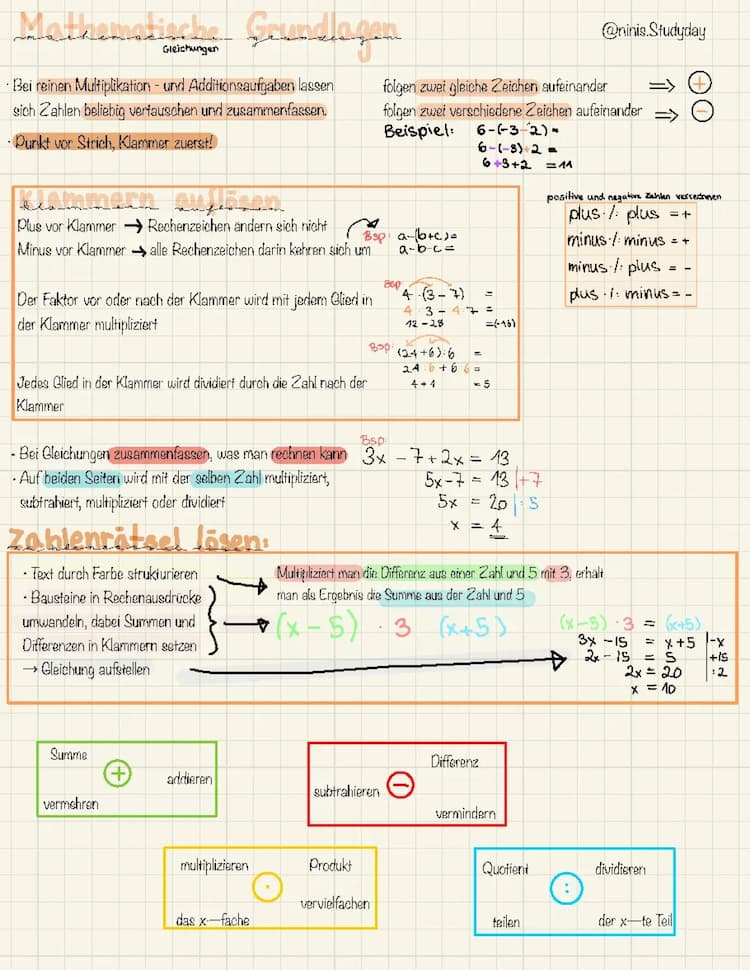 Mathematische Grundlagen
mathematische grundlagen
Gleichungen
@ninis.Studyday
· Bei reinen Multiplikation - und Additionsaufgaben lassen
sich Zahlen beliebig vertauschen und zusammenfassen.
· Punkt vor Strich, Klammer zuerst!
folgen zwei gleiche Zeichen aufeinander ⇒ +
folgen zwei verschiedene Zeichen aufeinander ⇒ −
Beispiel: 6-(-3-2)=
6-(-3)+2 =
6+3+2 =11
Klammern auflösen
klammern auflösen
Plus vor Klammer → Rechenzeichen ändern sich nicht
Minus vor Klammer → alle Rechenzeichen darin kehren sich um
Bsp: a-(b+c)=
a-b-c=
Der Faktor vor oder nach der Klammer wird mit jedem Glied in
der Klammer multipliziert
Bsp
4·(3-7) =
4·3-4·7 =
12-28 =(-16)
Bsp: (24+6):6 =
24:6+6:6=
4+1 =5
Jedes Glied in der Klammer wird dividiert durch die Zahl nach der
Klammer
positive und negative Zahlen verrechnen
plus ·/: plus = +
minus ·/: minus = +
minus ·/: plus = -
plus ·/: minus = -
· Bei Gleichungen zusammenfassen, was man rechnen kann
· Auf beiden Seiten wird mit der selben Zahl multipliziert,
subtrahiert, multipliziert oder dividiert
Bsp:
3x -7+2x = 13
5x-7 = 13 |+7
5x = 20 |:5
x = 4
Zahlenrätsel lösen:
zahlenrätsel lösen:
· Text durch Farbe strukturieren
· Bausteine in Rechenausdrücke
umwandeln, dabei Summen und
Differenzen in Klammern setzen
→ Gleichung aufstellen
Multipliziert man die Differenz aus einer Zahl und 5 mit 3, erhält
man als Ergebnis die Summe aus der Zahl und 5
(x-5) · 3 (x+5)
(x-5) · 3 = (x+5)
3x -15 = x+5 |-x
2x - 15 = 5 |+15
2x = 20 |:2
x = 10
Summe
+
addieren
vermehren
Differenz
subtrahieren −
vermindern
multiplizieren Produkt
·
vervielfachen
das x-fache
Quotient dividieren
:
teilen der x-te Teil